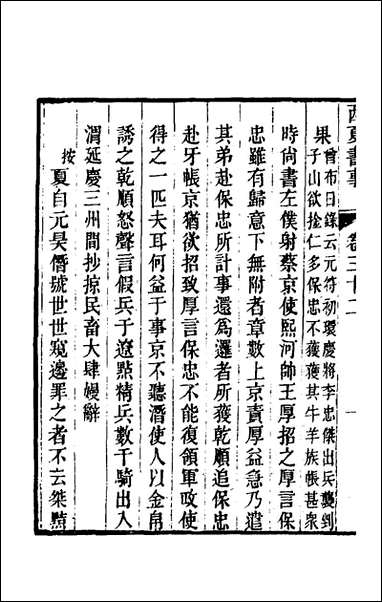 西夏書事 卷三十二 一
果曾布日錄云元符初環慶將李忠傑出兵襲到
子山欲擒仁多保忠不獲獲其牛羊族帳甚衆
時尚書左僕射蔡京使熙河帥王厚招之厚言保
忠雖有歸意下無附者章數上京責厚益急乃遣
其弟赴保忠所計事還爲邏者所獲乾順追保忠
赴牙帳京猶欲招致厚言保忠不能復領軍政使
得之一匹夫耳何益于事京不聽潛使人以金帛
誘之乾順怒聲言假兵于遼點精兵數千騎出入
渭延慶三州間抄掠民畜大肆嫚辭
按夏自元昊僭號世世窺邊罪之者不云桀黠